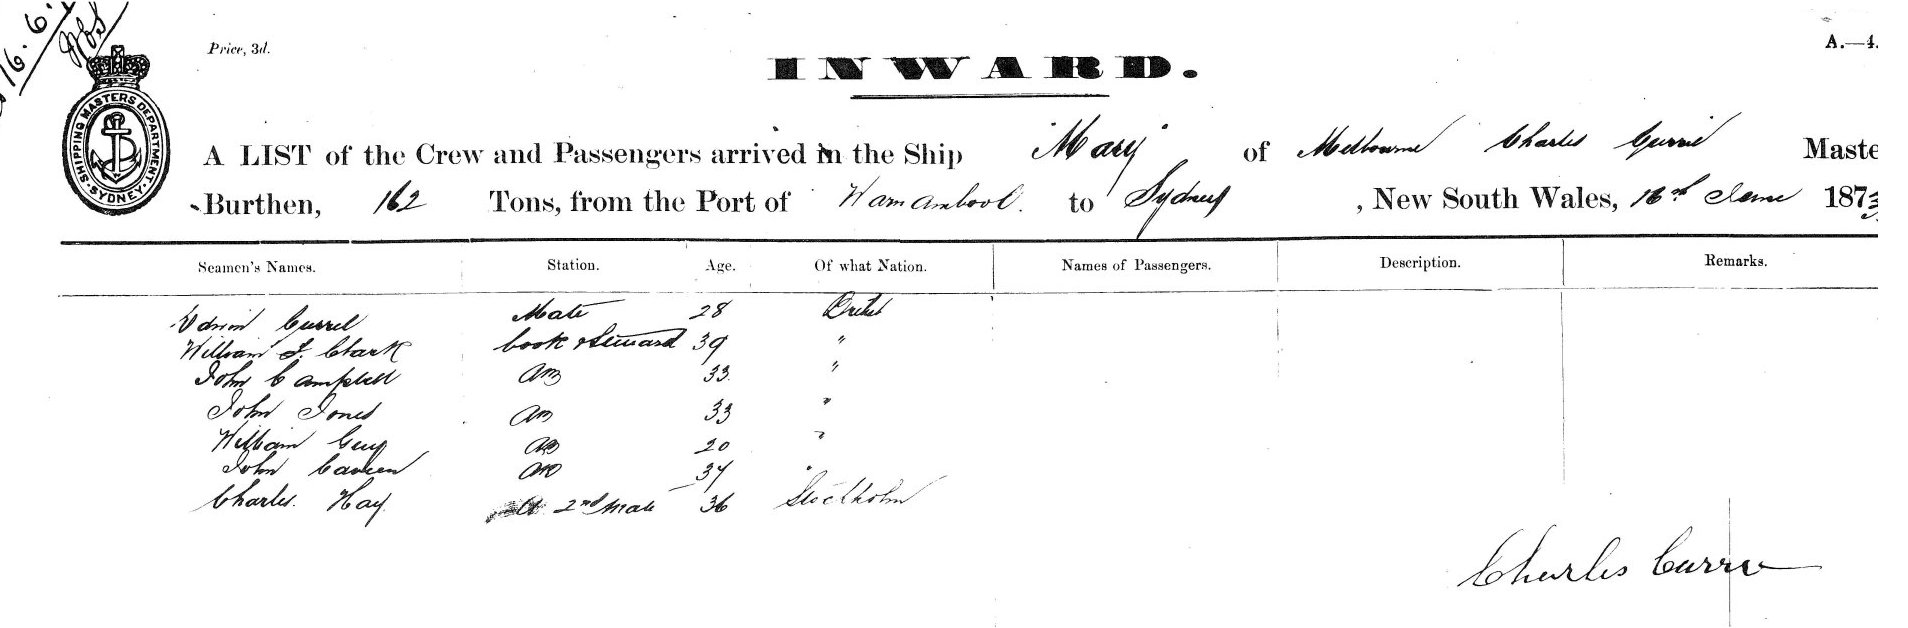 16.6.
Price, 3d.
A.—4.
INWARD.
SHIPPING MASTERS DEPARTMENT. SYDNEY.
A LIST of the Crew and Passengers arrived in the Ship "Mary" of Melbourne Charles Currie Maste
Burthen, 162 Tons, from the Port of Warnambool. to Sydney, New South Wales, 16th June 1873
Seamen's Names. Station. Age. Of what Nation. Names of Passengers. Description. Remarks.
Mate 28 British
William J. Clark Cook & Steward 39 "
John Campbell AB 33 "
John Jones AB 33 "
William AB 20 "
John AB
Charles Hay 2nd Mate 36 Stockholm
Charles Currie